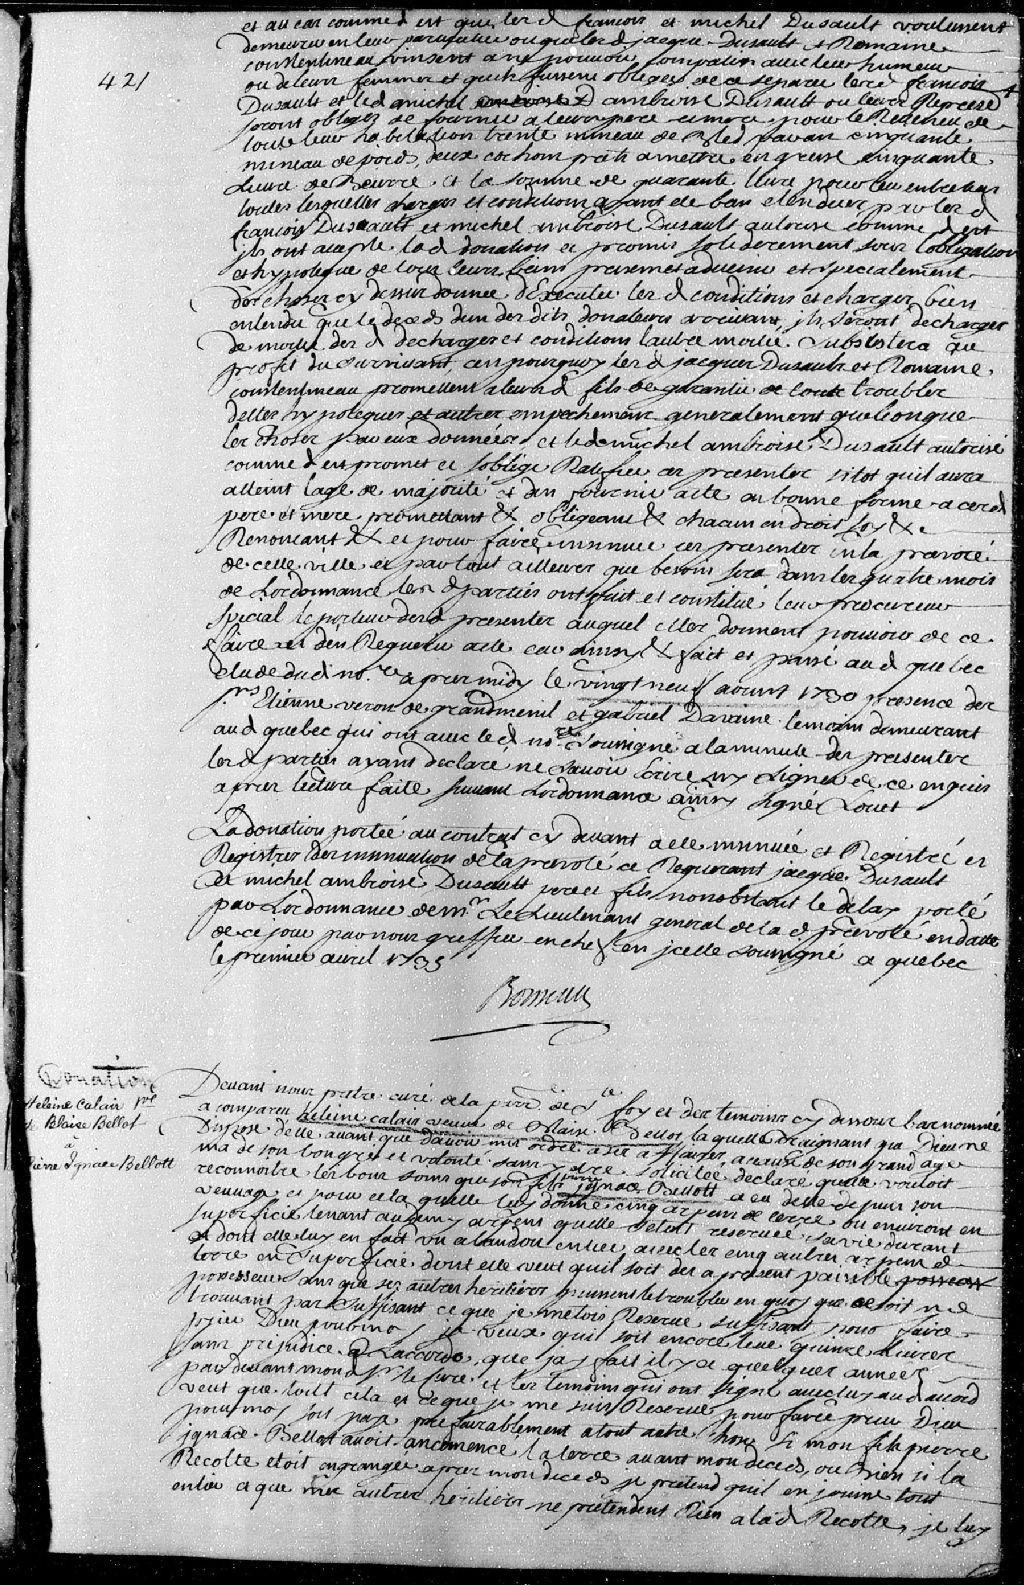 421
et au cas comme dit est que les d françois et michel Dusault voulussent
demeurer en leur particulier ou que les d jacque Dusault et Romaine
contentineau vinsent a ne pouvoir compatir avec leur humeur
ou de leurs femmes et qu'ils fussent obliges de ce separer les d françois
Dusault et led michel ambroise Dusault ou leurs
seront obligez de fournir a leur pere et mere pour le Revenu de
toute leur habitation trente mineau de Bled pavan cinquante
mineau de poids, deux cochons prets a mettre en gresse cinquante
Livre de Beurre et la somme de quarante livre pour leur entretien
toutes lesquelles charges et conditions ayant ete bien etendues par les d
françois Dusault et michel ambroise Dusault autorisé comme dit est
ils ont accepté lad donation et promis soliderement sous l'obligation
et hypoteque de tous leurs biens presents et advenir et specialement
des choses cy dessus données d'Executer les d conditions et charges bien
entendu que le deceds d'un des dits donateurs arrivant, ils seront decharges
de moitié des d charges et conditions l'autre moitié subsistera au
profit du survivant, cest pourquoy les d jacques Dusault et Romaine
contentineau promettent a leurs d fils de garantir de tous troubles
dettes hypoteques et autres empechemens generalement quelconque
les choses par eux données et led michel ambroise Dusault autorisé
comme d est promet et soblige Ratifier ces presentes sitot quil aura
atteint lage de majorité et den fournir acte en bonne forme a ces d
pere et mere promettant &c obligeant &c chacun en droit soy &c
Renonceant &c et pour faire insinuer ces presentes en la prevoté
de cette ville et partout ailleurs que besoin sera dans les quatre mois
de Lordonnance les d parties ont fait et constitué leur procureur
special le porteur des d presentes auquel elles donnent pouvoir de ce
faire et den Requerir acte car ainsy &c fait et passé aud quebec
etude dud no.re apres midy le vingt neuf 1730 presence des
srs Etienne veron de grandmenil et gabriel Davaine temoins demeurant
aud quebec qui ont avec led no.re soussigné a la minute des presentes
les d parties ayant declaré ne savoir Ecrire ny signer de ce enquis
apres lecture faite suivant Lordonnance ainsy signé Louet
La donation portée au contrat cy devant a ete insinuée et Registré es
Registres des insinuations de la prevoté ce Requerant jacque Dusault
et michel ambroise Dusault pere et fils nonobstant le delay porté
par Lordonnance de mr Le Lieutenant general de la d prevoté en datte
de ce jour par nous greffier en chef en jcelle soussigné a quebec
le premier avril 1735
Boisseau
Donation
Heleine Calais
de Blaise Bellot
a
Pierre Ignace Bellott
Devant nous prêtre curé de la parr de Ste foy et des temoins cy dessous bas nommés
a comparu heleine calais veuve de Blaise Bellot laquelle craignant que Dieu ne
Dispose delle avant que davoir mis ordre a ses affaires, acause de son grand age
ma de son bon gré et volonté sans y etre solicitée declaré quelle vouloit
reconnoitre les bons soins que son fils pierre jgnace Bellott a eu delle depuis son
veuvage et pour cela quelle luy donne cinq arpens de terre ou environt en
superficie tenant audemy arpens quelle setoit reservée sa vie durant
et dont elle luy en fait un abandon entier, avec les cinq autres arpens de
terre en superficie dont elle veut quil soit des a present paisible
possesseur sans que ses autres heritiers puissent le troubler en quoy que ce soit ne
trouvant pas suffisant ce que je metois Reservé suffisant pour faire
prier Dieu pour moy je veux quil soit encore levé quinze Livres
sans prejudice a Laccorde, que jay fait il y a quelques années
par devant mond sr le sure et les temoins qui ont signé avec luy aud accord
veut que tout cela et ce que je me suis Reservé pour faire prier Dieu
pour moy soit payé preferablement a tout autre chose Si mon fils pierre
jgnace Bellot avoit encemencé la terre avant mon deceds, ou Bien si la
Recolte etoit engrangée apres mon deceds je pretend quil en jouisse tout
entier a que mes autres heritiers ne pretendent Rien a lad Recolte, je luy